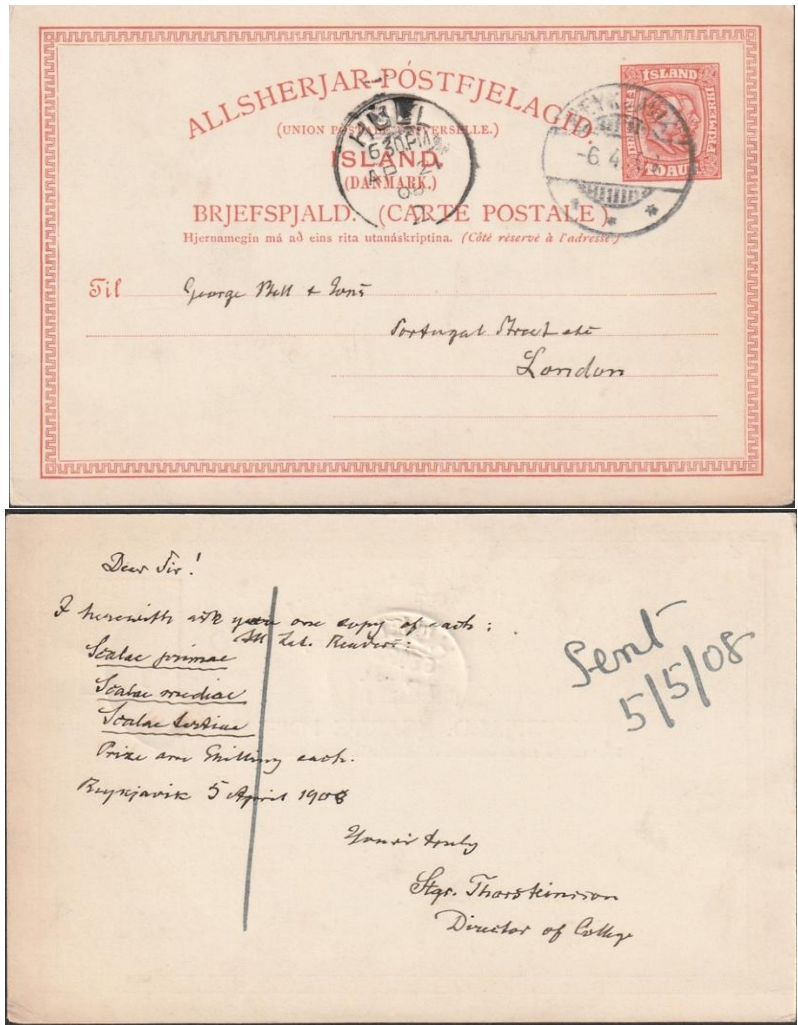 ALLSHERJAR-PÓSTFJELAGIÐ.
(UNION POSTALE UNIVERSELLE.)
ÍSLAND.
(DANMARK.)
BRJEFSPJALD. (CARTE POSTALE)
Hjernamegin má að eins rita utanáskriptina. (Côté réservé à l'adresse)
ÍSLAND
FRIMERKI
10 AU
HULL
630PM
AP 21
08
-6.4.
Til George Bell & Sons
Portugal Street
London
Dear Sir!
I herewith ask you one copy of each:
Lat. Readers:
Scalae primae
Scalae mediae
Scalae tertiae
Prize one Shilling each.
Reykjavik 5 April 1908
Yours truly
Stgr. Thorsteinsson
Director of College
Sent
5/5/08